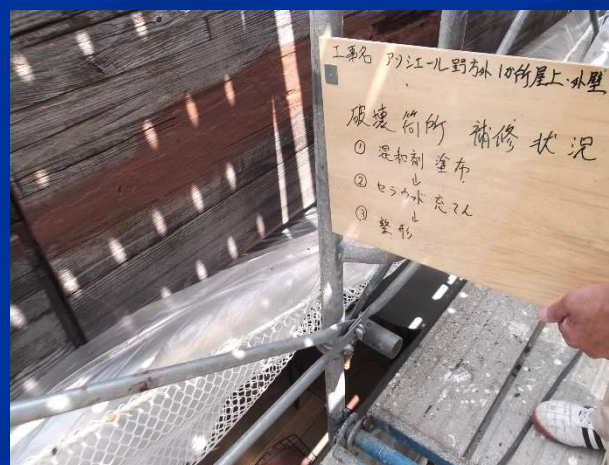 工事名 アンシエール野方外1か所屋上・外壁
破壊箇所 補修状況
① 混和剤 塗布
↓
② セラ 充てん
↓
③ 整形